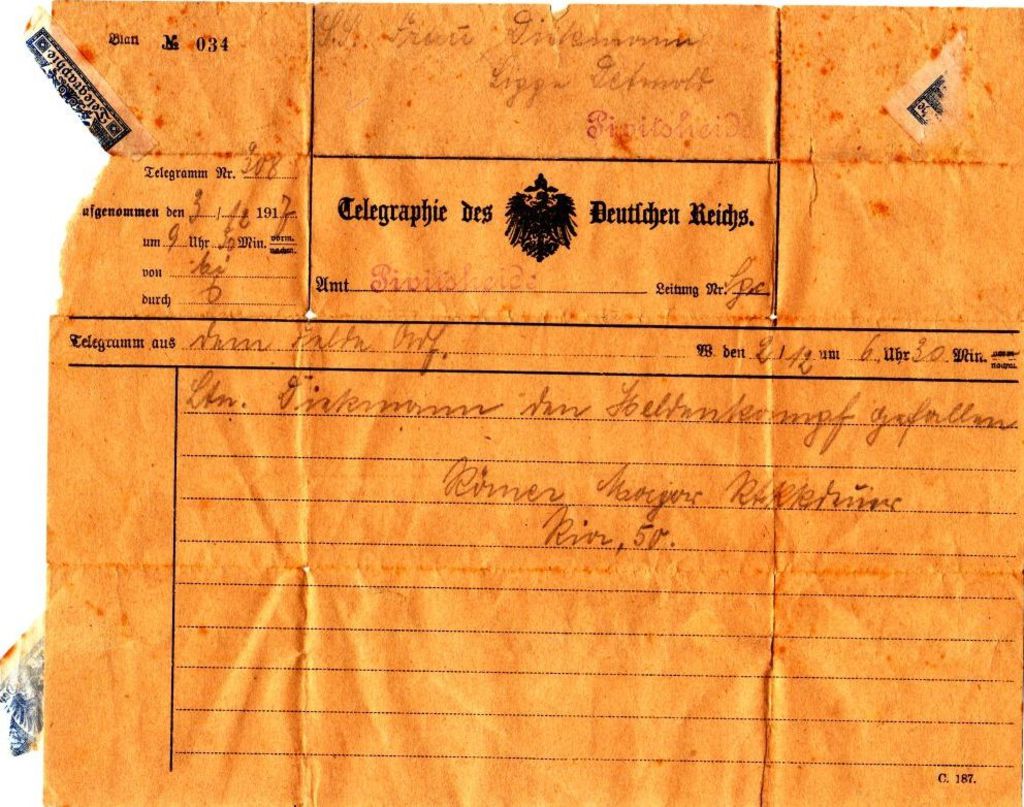 Blatt № 034
Telegraphie
S.S. Frau Diekmann
Lippe Detmold
Pivitsheide
Telegramm Nr. 308
ufgenommen den 3/12 1917
um 9 Uhr Min. vorm. nachm.
von
durch
Telegraphie des Deutschen Reichs.
Amt Pivitsheide Leitung Nr.
Telegramm aus dem Felde W. den 2/12 um 6 Uhr 30 Min. vorm. nachm.
Ltn. Diekmann den Heldenkampf gefallen
Römer Major
50.
C. 187.